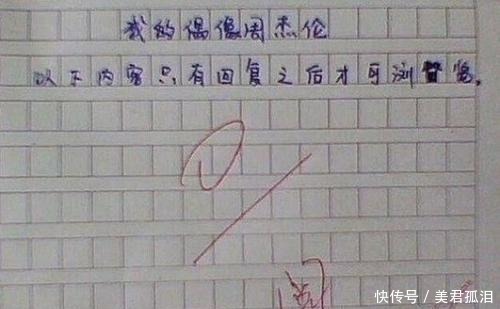 我的偶像周杰伦
以下内容只有回复之后才可浏览。
阅
快传号／美君孤泪